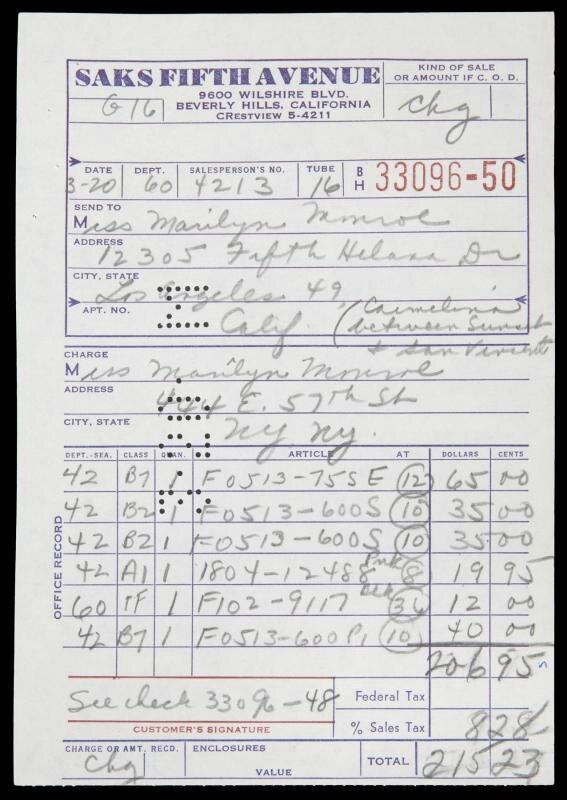 SAKS FIFTH AVENUE
9600 WILSHIRE BLVD.
BEVERLY HILLS, CALIFORNIA
CRESTVIEW 5-4211
G16
KIND OF SALE
OR AMOUNT IF C. O. D.
chg
DATE DEPT. SALESPERSON'S NO. TUBE B H 33096-50
3-20 60 4213 16
SEND TO
Miss Marilyn Monroe
ADDRESS
12305 Fifth Helana Dr
CITY, STATE
Los Angeles 49,
APT. NO.
Calif. (Carmelina
between Sunset
+ San Vincente
CHARGE
Miss Marilyn Monroe
ADDRESS
444 E. 57th St
CITY, STATE
NY, NY.
DEPT.-SEA. CLASS QUAN. ARTICLE AT DOLLARS CENTS
42 B7 1 F0513-755 E 12 65 00
42 B2 1 F0513-600S 10 35 00
42 B2 1 F0513-600S 10 35 00
42 A1 1 1804-12488 Pnk 8 19 95
60 1 F102-9117 Blk 36 12 00
42 B7 1 F0513-600P1 10 40 00
206 95
OFFICE RECORD
See check 33096-48
CUSTOMER'S SIGNATURE
Federal Tax
% Sales Tax 8 28
CHARGE OR AMT. RECD. ENCLOSURES
chg
VALUE
TOTAL 215 23